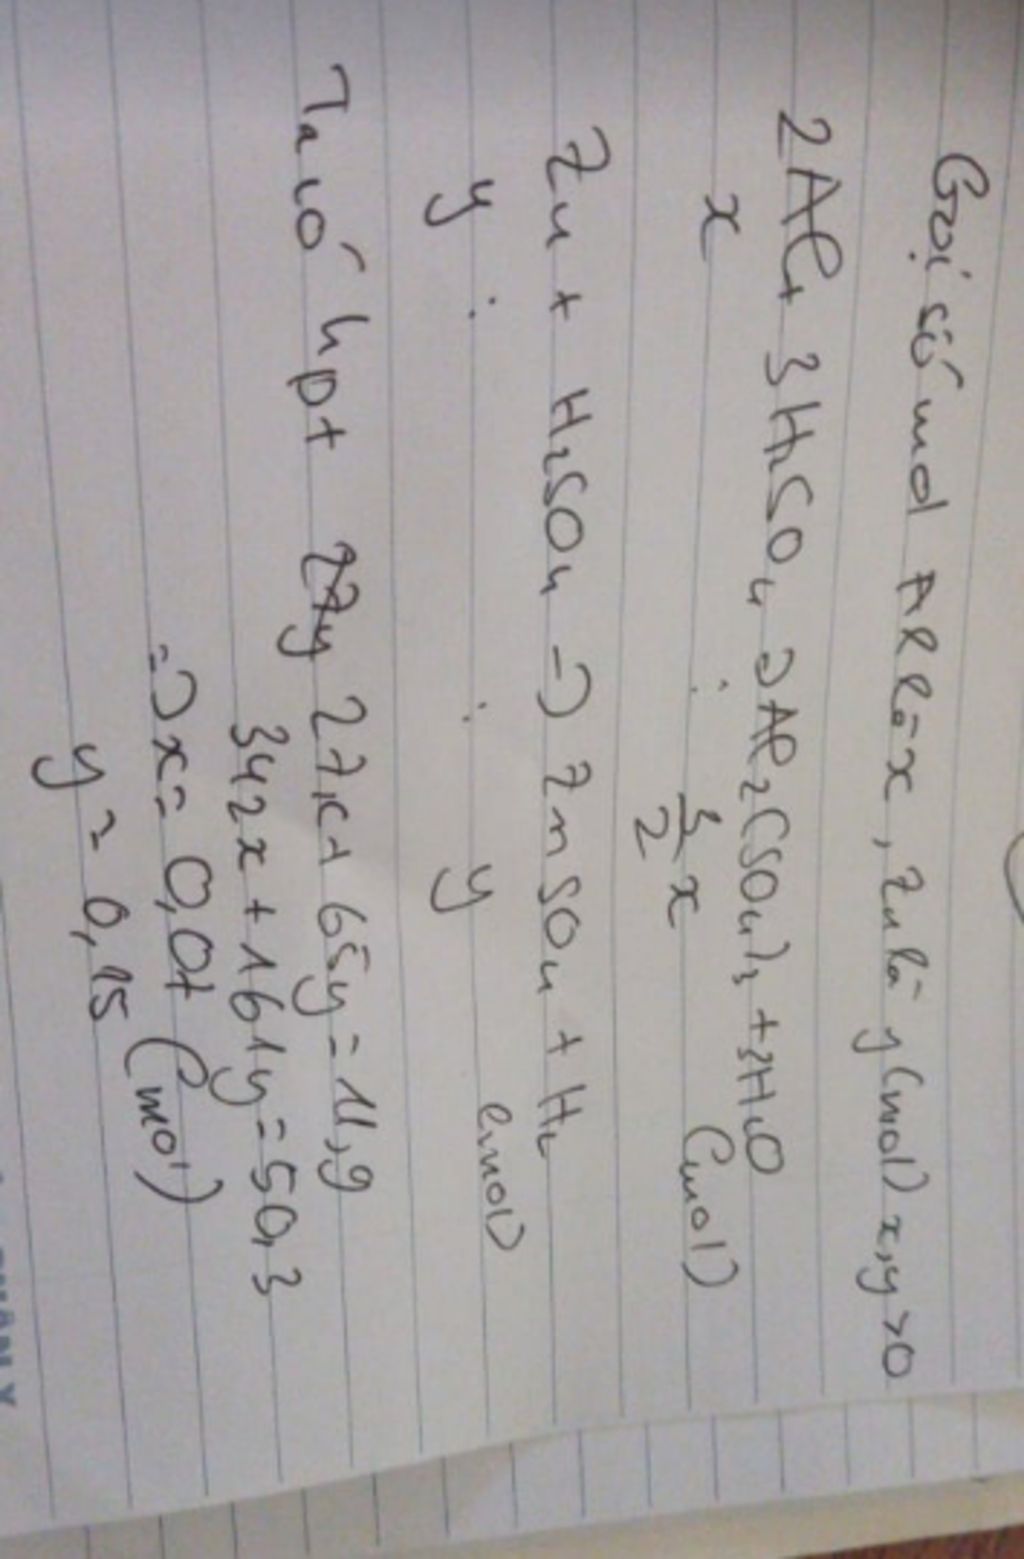 Gọi số mol Al là x, Zn là y (mol) x,y >0
2Al + 3H2SO4 => Al2(SO4)3 + 3H2O
x : 3/2 x (mol)
Zn + H2SO4 => ZnSO4 + H2
y : : y (mol)
Ta có hpt 27x + 65y = 11,9
342x + 161y = 50,3
=> x = 0,07 (mol)
y = 0,15